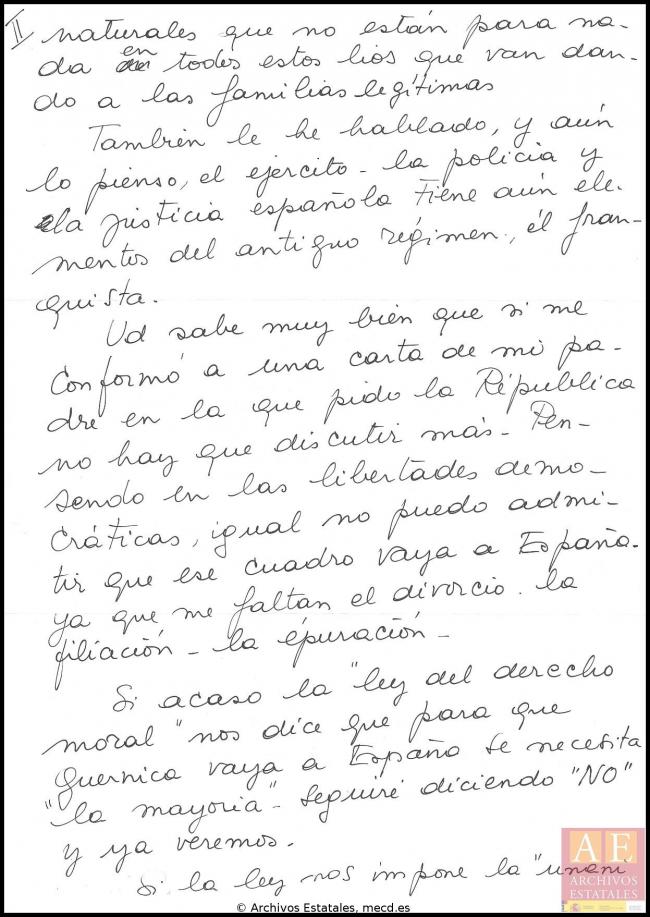 II naturales que no están para na-
da en todos estos lios que van dan-
do a las familias legítimas
También le he hablado, y aún
lo pienso, el ejército - la policia y
la justicia española tiene aún ele-
mentos del antiguo régimen, él fran-
quista.
Ud sabe muy bién que si me
Conformó a una carta de mi pa-
dre en la que pido la Républica
no hay que discutir más - Pen-
sendo en las libertades demo-
cráticas, igual no puedo admi-
tir que ese cuadro vaya a España.
ya que me faltan el divorcio. la
filiación - la épuración -
Si acaso la "ley del derecho
moral" nos dice que para que
Guernica vaya a España se necesita
"la mayoria" - Seguiré diciendo "NO"
y ya veremos.
Si la ley nos impone la "unani
AE
ARCHIVOS
ESTATALES
© Archivos Estatales, mecd.es